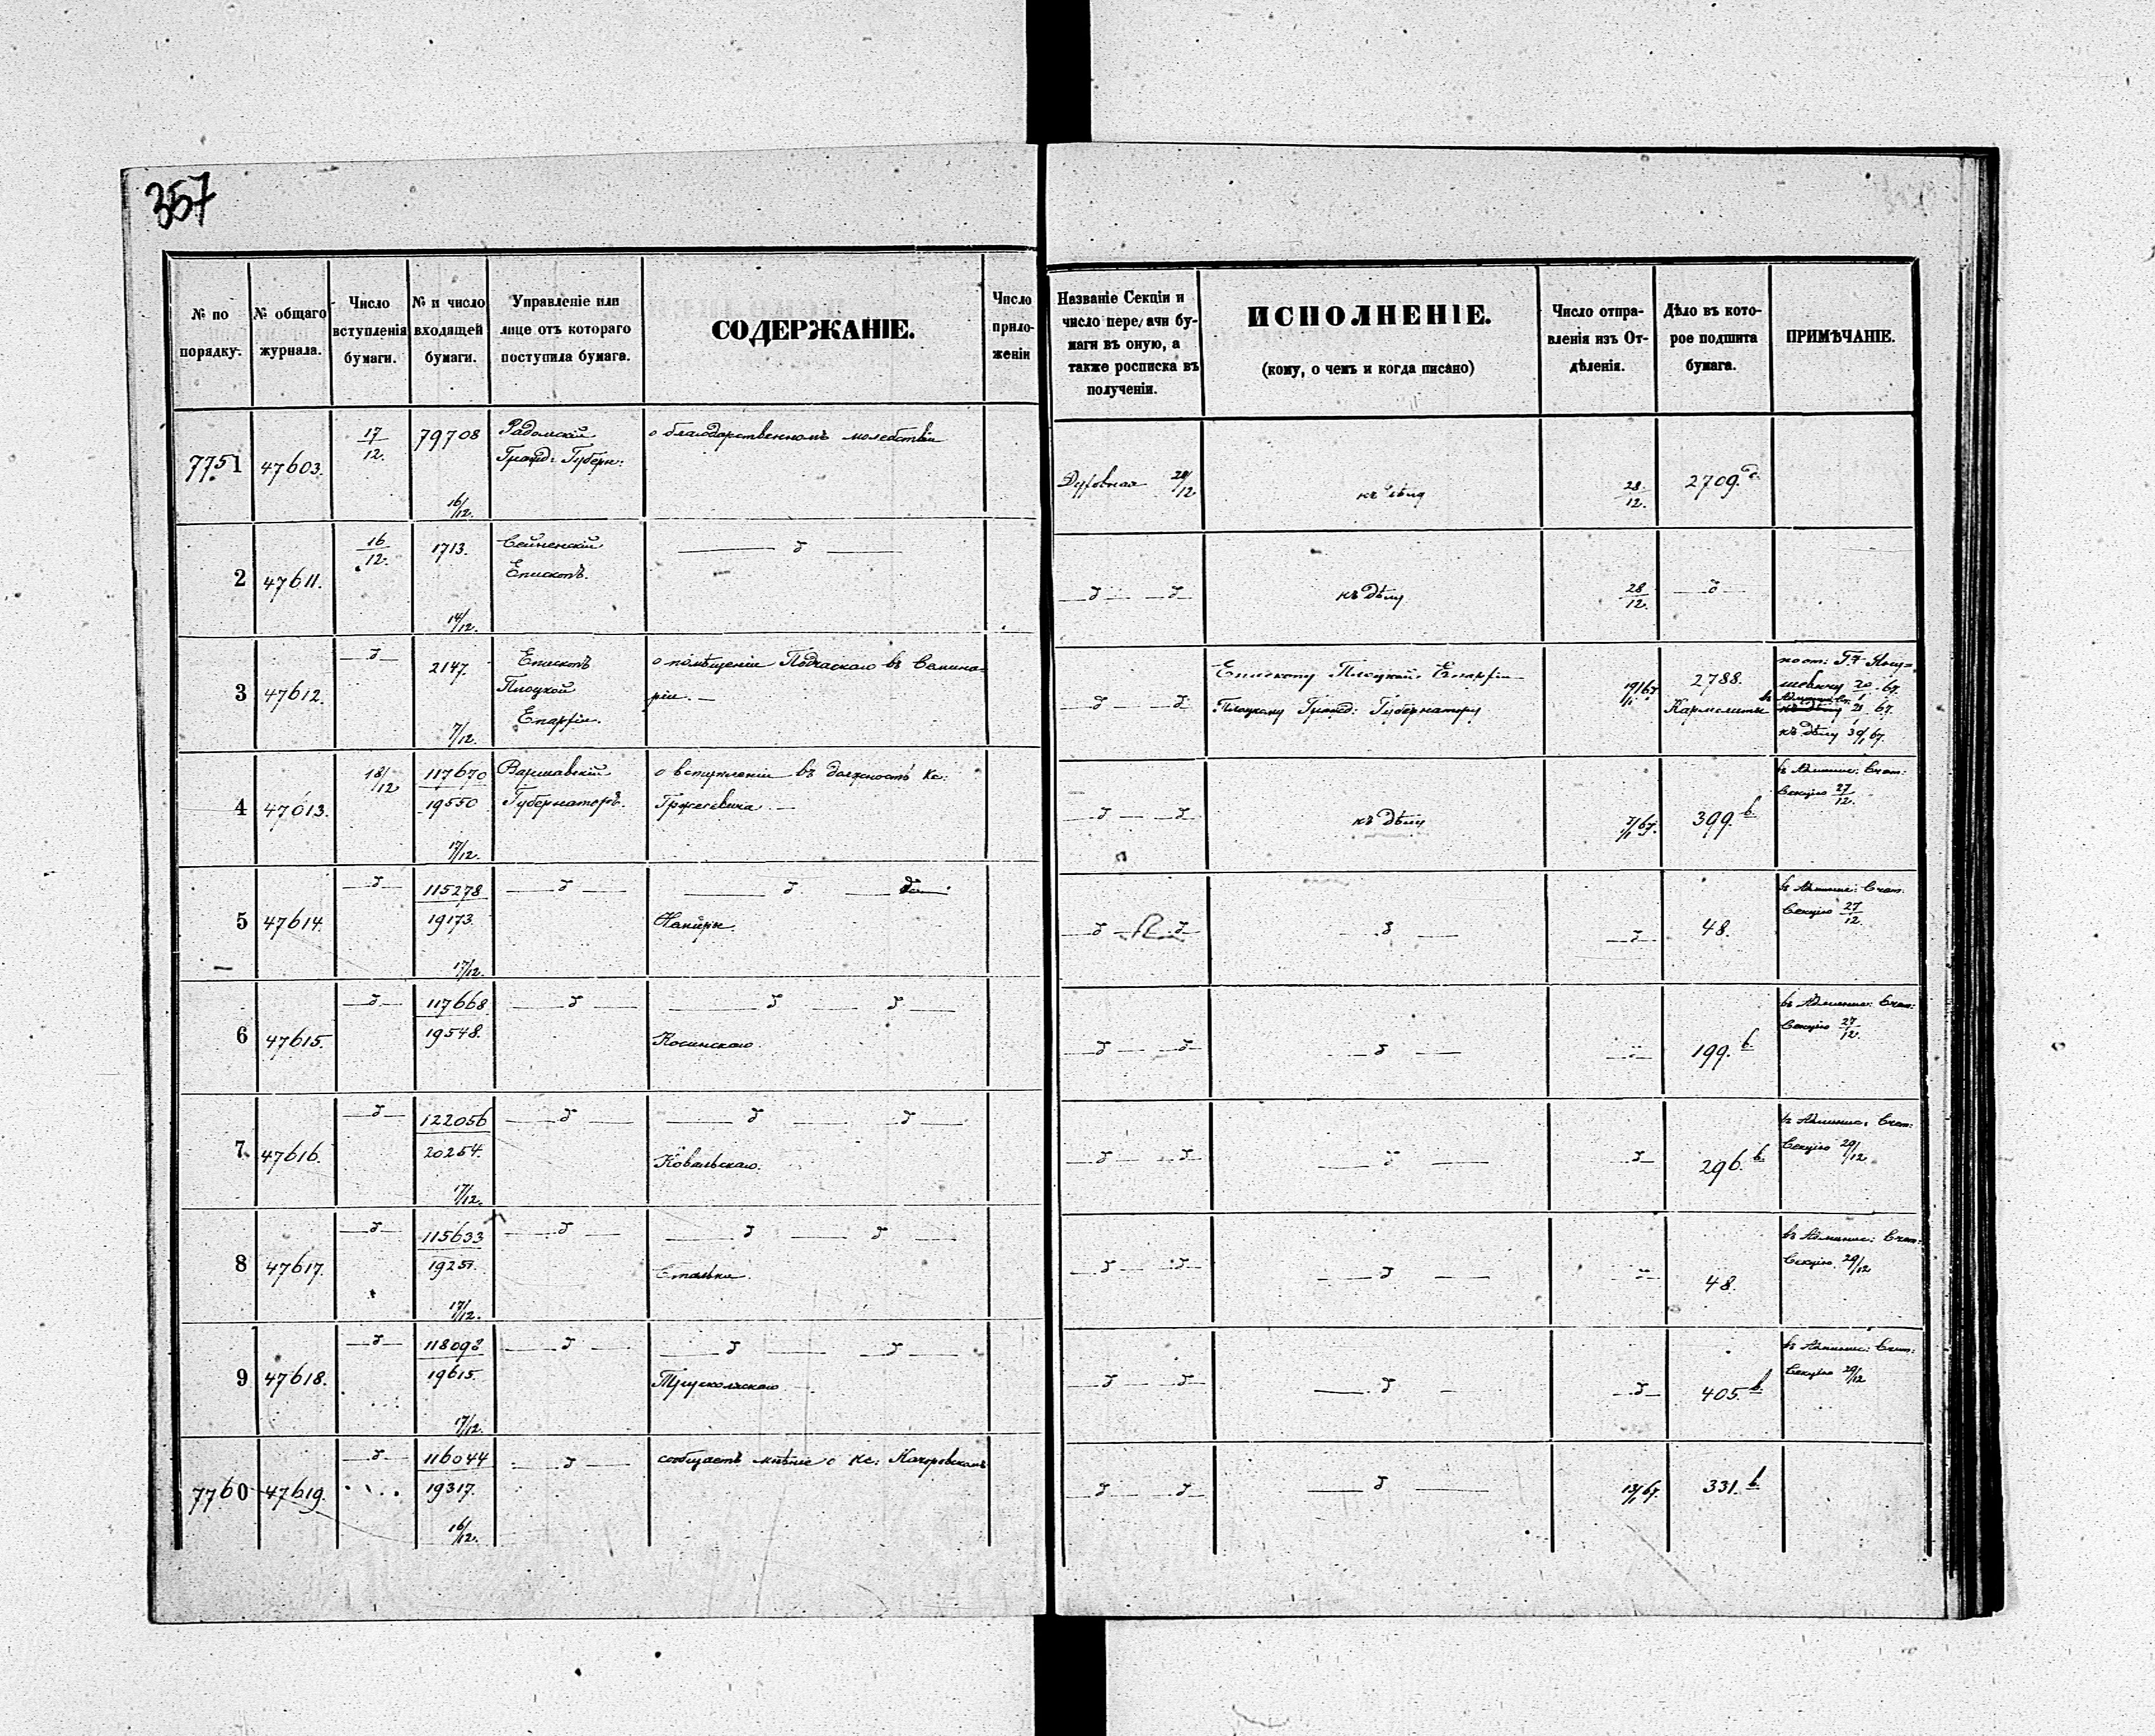 357
№ по порядку.
№ общаго журнала.
Число вступленія бумаги.
№ и число входящей бумаги.
Управленіе или лице отъ котораго поступила бумага.
СОДЕРЖАНІЕ.
Число приложеніи
Названіе Секціи и число передачи бумаги въ оную, а также росписка въ полученіи.
ИСПОЛНЕНІЕ.
(кому, о чемъ и когда писано)
Число отправленія изъ Отдѣленія.
Дѣло въ которое подшита бумага.
ПРИМѢЧАНІЕ.
7751 47603. 17/12. 79708 16/12. Радомскій Гражд: Губерн: о благодарственномъ молебствіи
Духовная 24/12 къ дѣлу 28/12. 2709.
2 47611. 16/12. 1713. 14/12. Сейненскій Епископъ. — " —
— " — " — къ дѣлу 28/12. — " —
3 47612. — " — 2147. 7/12. Епископъ Плоцкой Епархіи. о помѣщеніи Подчаскаго въ Семинаріи. —
— " — " — Епископу Плоцкой Епархіи
Плоцкому Гражд: Губернатору 19/1 67. 2788. Кармелиты
къ дѣлу 30/1 67.
4 47613. 18/12 117670/19550 17/12. Варшавскій Губернаторъ. о вступленіи въ должность Кс: Гржегевича. —
— " — " — къ дѣлу 7/1 67. 399. b. въ Админис: Счет: Секцію 27/12.
5 47614. — " — 115278/19173. 17/12. — " — — " — " —
— " — " — — " — — " — 48. въ Админис: Счет: Секцію 27/12.
6 47615. — " — 117668/19548. — " — — " — " — Косинскаго.
— " — " — — " — — " — 199. b. въ Админис: Счет: Секцію 27/12.
7 47616. — " — 122056/20254. 17/12. — " — — " — " — Ковальскаго.
— " — " — — " — — " — 296. b. въ Админис: Счет: Секцію 29/12
8 47617. — " — 115633/19251. 17/12. — " — — " — " —
— " — " — — " — — " — 48. въ Админис: Счет: Секцію 29/12
9 47618. — " — 118092/19615. 17/12. — " — — " — " — Трусколяскаго
— " — " — — " — — " — 405. b. въ Админис: Счет: Секцію 29/12
7760 47619. — " — 116044/19317. 16/12. — " — сообщаетъ мнѣніе о Кс: Качоровскомъ
— " — " — — " — 13/1 67. 331. b.